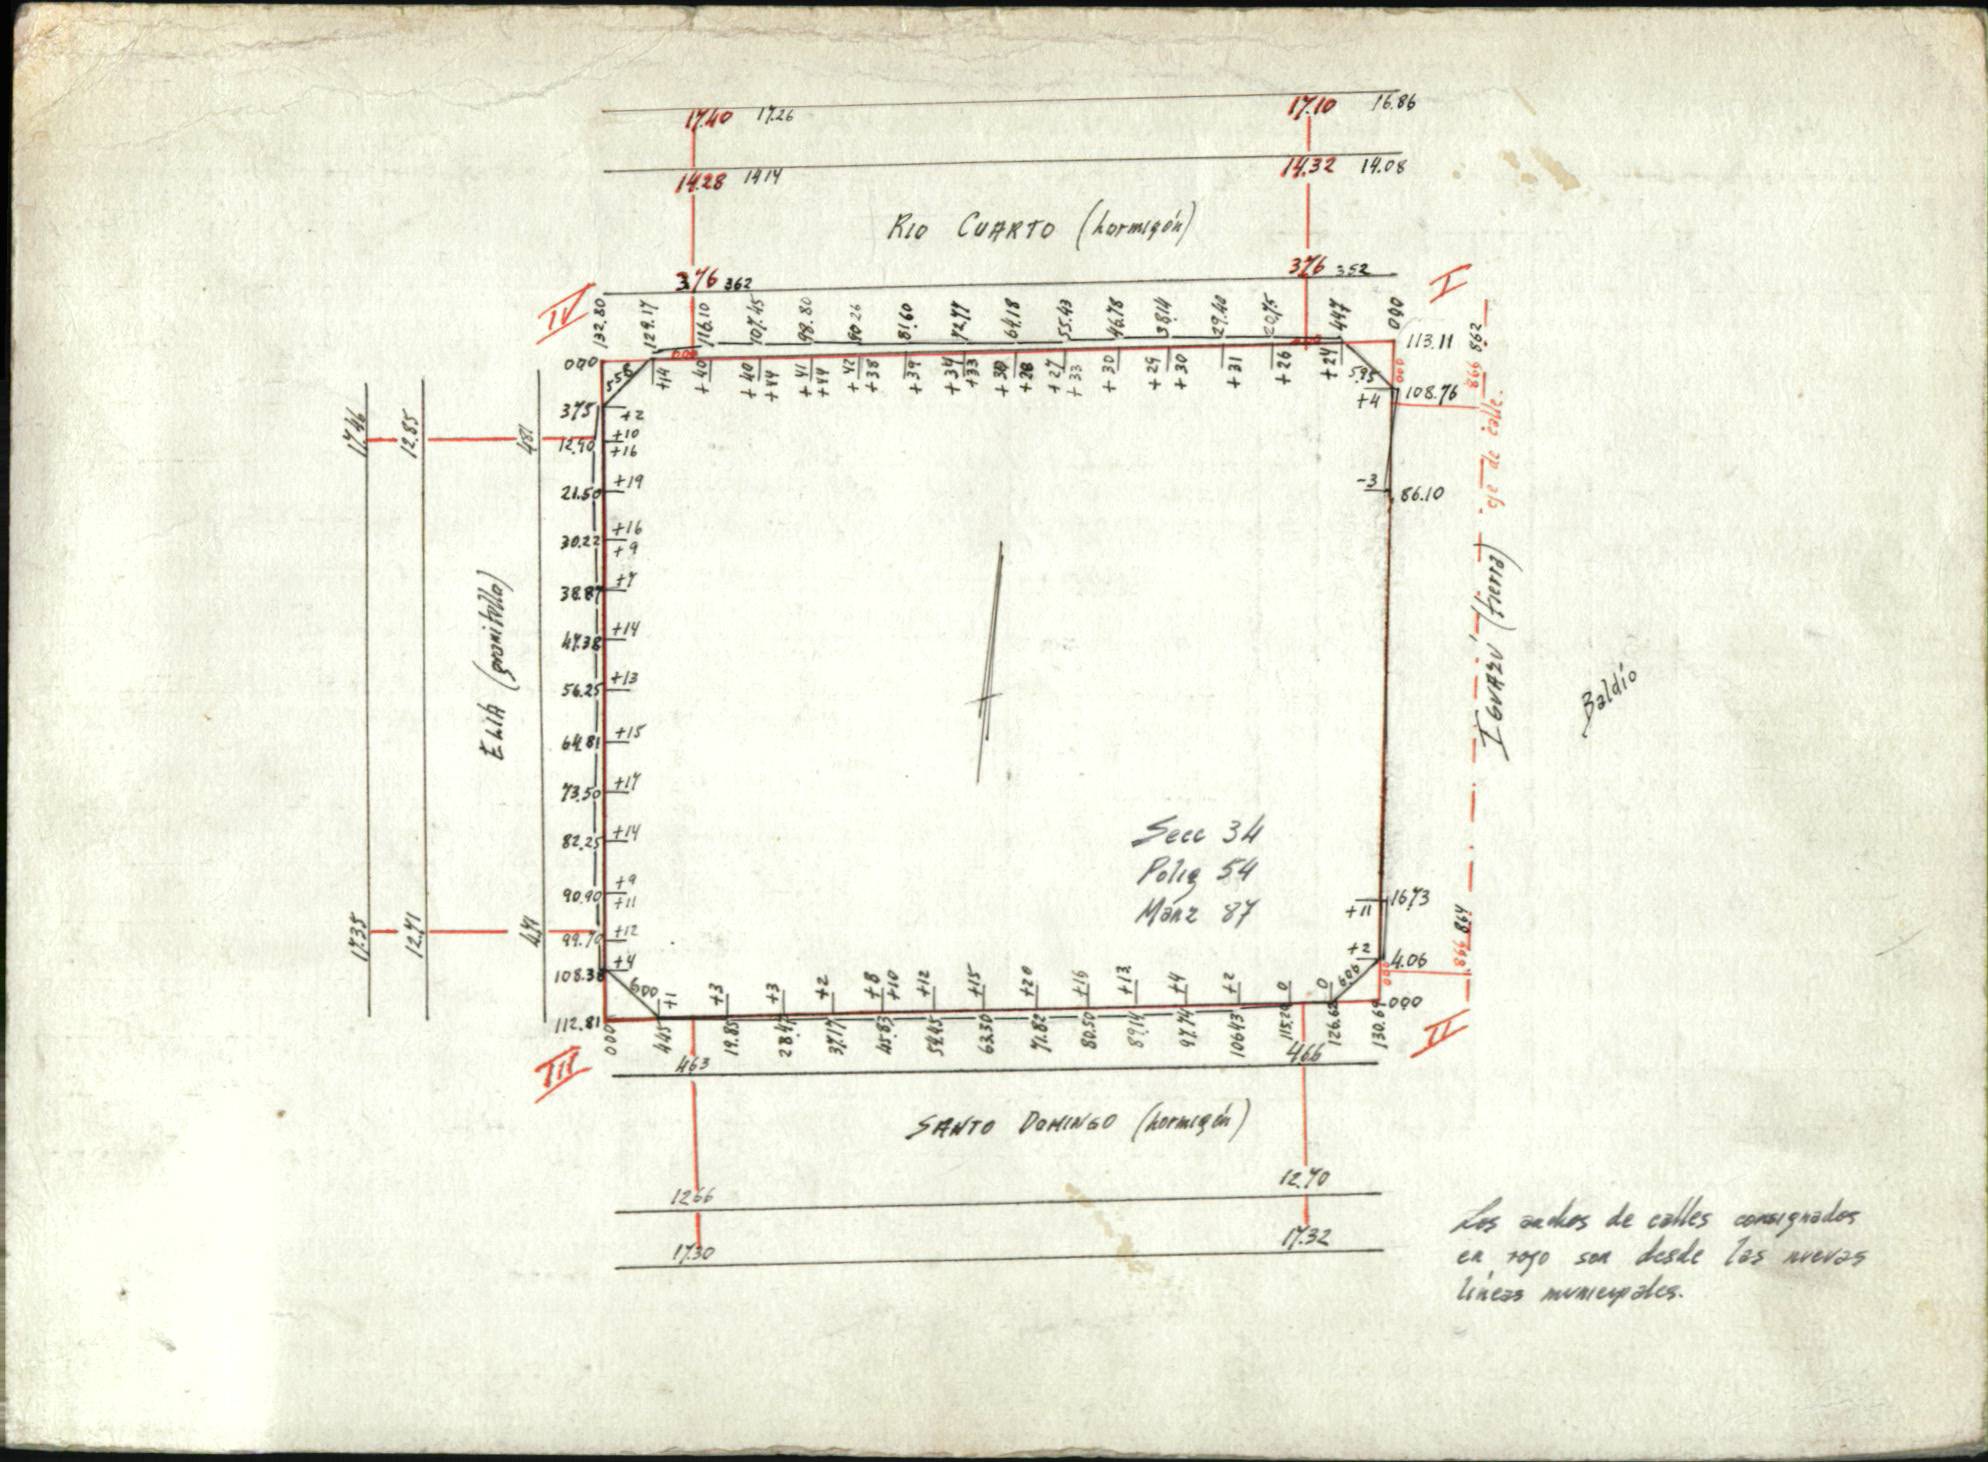 17.40 17.26
17.10 16.86
14.28 14.14
14.32 14.08
RIO CUARTO (hormigón)
376 362
376 352
IV
I
132.80 129.17 116.10 107.45 98.80 90.26 81.60 72.77 64.18 55.43 46.78 38.14 29.40 20.75 4.47 0.00
000
000
+14 +40 +40 +44 +41 +44 +42 +38 +39 +34 +33 +30 +28 +27 +33 +30 +29 +30 +31 +26 +24
113.11
000
866 862
5.56
5.95
3.75 +2
+4 108.76
17.46 12.85 4.81
12.90 +10 +16
21.50 +19
-3 86.10
30.22 +16 +9
38.87 +7
47.38 +14
56.25 +13
64.81 +15
73.50 +17
82.25 +14
90.90 +9 +11
99.70 +12
108.38 +4
112.81
eje de calle.
ELIA (granitullo)
IGUAZÚ (tierra)
Baldío
Secc 34
Polig 54
Manz 87
+11 16.73
17.35 12.71 4.71
866 864
+2 4.06
600
606
000
+1 +3 +3 +2 +8 +10 +12 +15 +20 +16 +12 +4 +2 0 0
000
II
000 4.45 19.85 28.47 37.17 45.83 54.45 63.30 71.82 80.50 89.14 97.74 106.43 115.20 126.62 130.69
III
463
466
SANTO DOMINGO (hormigón)
12.66
12.70
17.30
17.32
Los anchos de calles consignados
en rojo son desde las nuevas
líneas municipales.